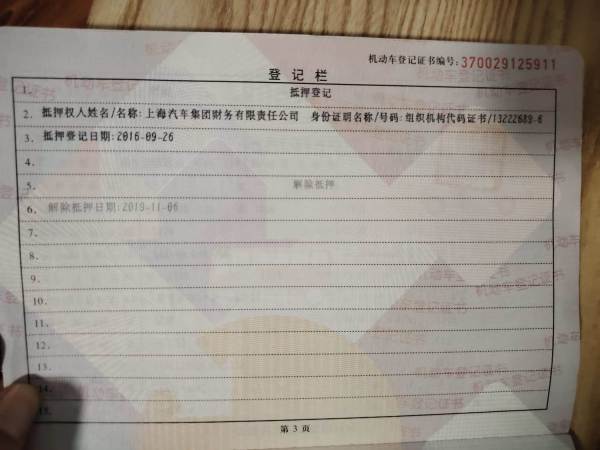 机动车登记证书编号: 370029125911
登记栏
1. 抵押登记
2. 抵押权人姓名/名称:上海汽车集团财务有限责任公司 身份证明名称/号码:组织机构代码证书/13222689-6
3. 抵押登记日期:2016-09-26
4.
5. 解除抵押
6. 解除抵押日期:2019-11-06
7.
8.
9.
10.
11.
12.
13.
14.
15.
第 3 页